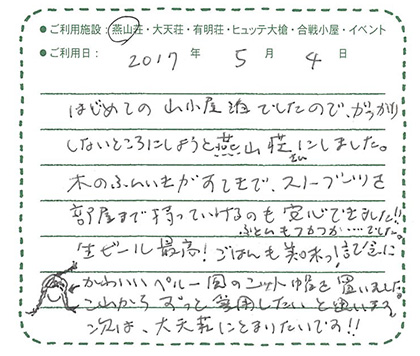 ●ご利用施設：燕山荘・大天荘・有明荘・ヒュッテ大槍・合戦小屋・イベント
●ご利用日：2017年5月4日
はじめての山小屋泊でしたので、がっかり
しないところにしようと燕山荘さんにしました。
木のふんいきがすてきで、ストーブ
部屋まで持っていけるのも安心できました!!
ふとんもフカフカ・・・・でした。
生ビール最高！ごはんも美味っ！記念に
←かわいいペルー風のニット帽を買いました。
山から ずっと愛用したいと思います
次は、大天荘にとまりたいです!!